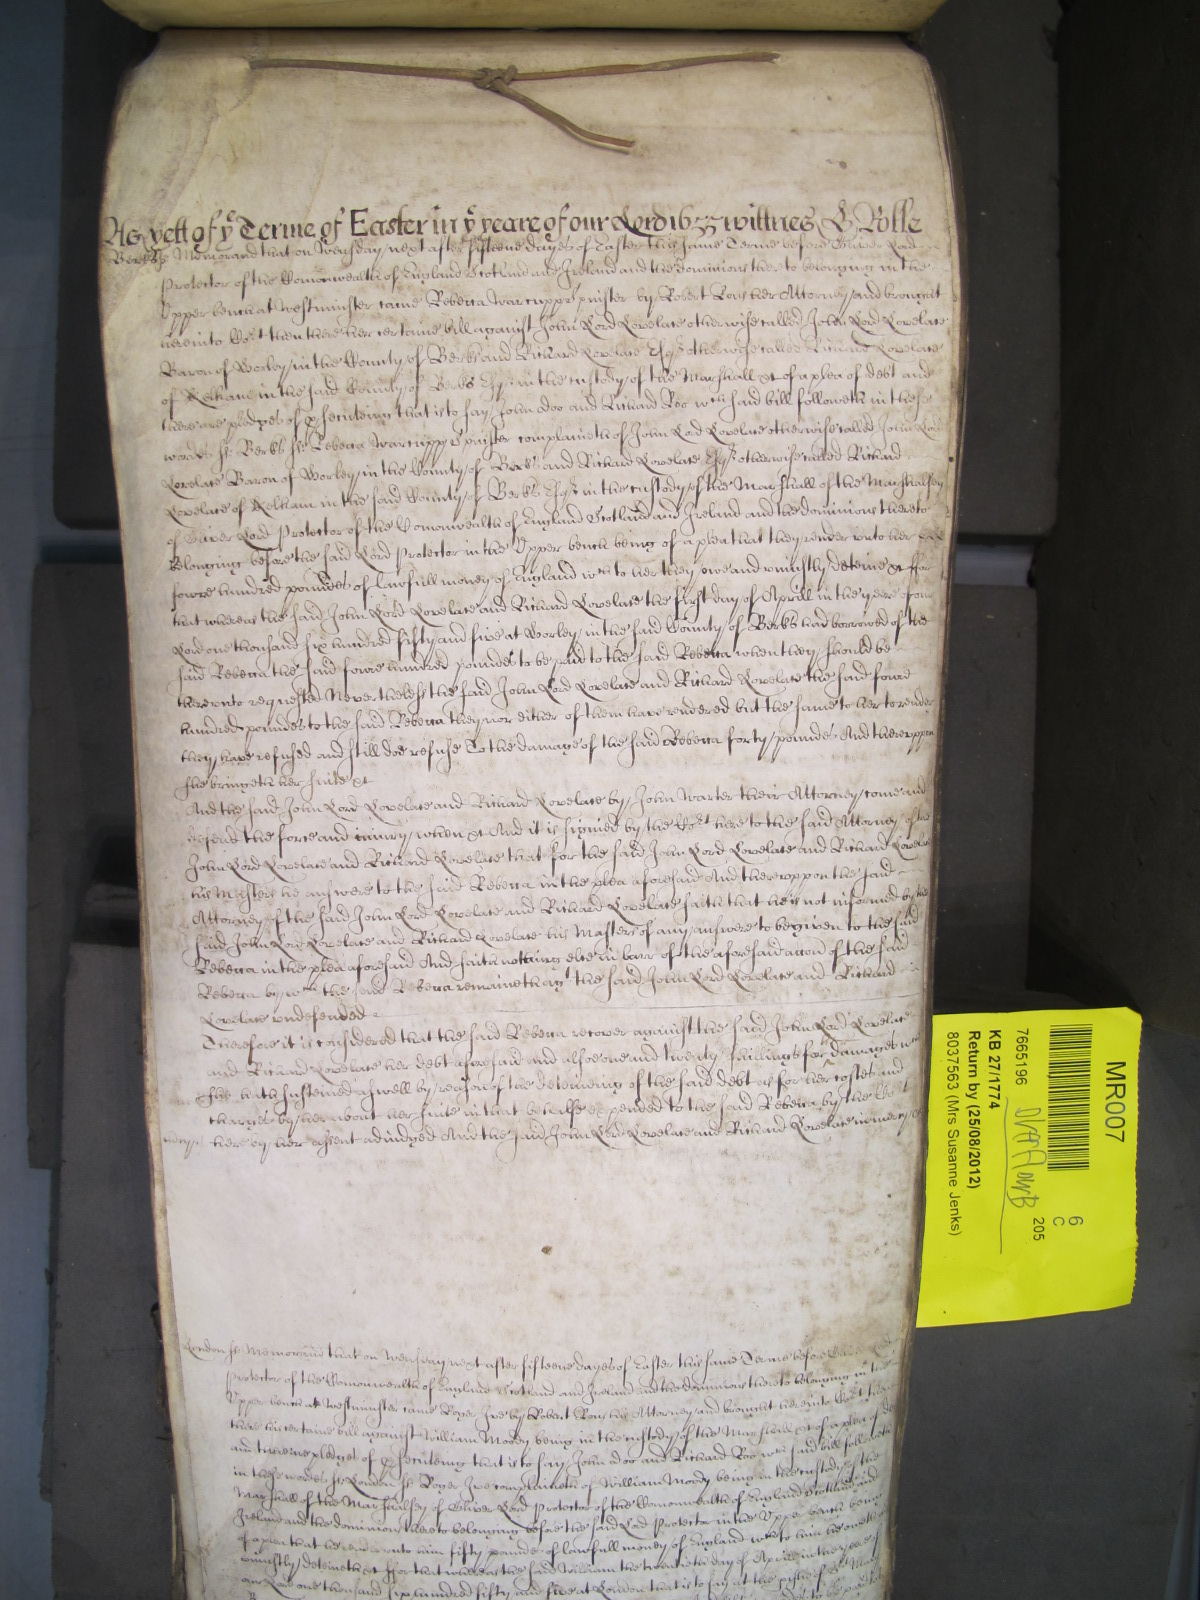 As yett of ye Terme of Easter in ye yeare of our Lord 1655 wittnes H Rolle
Berks ss Memorand that on Wensday next after fifteene dayes of Easter this same Terme before Oliver Lord
Protector of the Comonwealth of England Scotland and Ireland and the dominions thereto belonging in the
Upper bench at Westminster came Rebecca Warcupp spinster by Robert Rous her Attorney and brought
here into Cort then there her certaine bill against John Lord Lovelace otherwise called John Lord Lovelace
Baron of Worley in the County of Berks and Richard Lovelace Esqr otherwise called Richard Lovelace
of in the said County of Berks Esqr in the custody of the Marshall &c of a plea of debt and
there are pledges of psecuteing that is to say John Doo and Richard Roo wch said bill followeth in these
words ss Berks ss Rebecca Warcupp spinster complaineth of John Lord Lovelace otherwise called John Lord
Lovelace Baron of Worley in the County of Berks and Richard Lovelace Esqr otherwise called Richard
Lovelace of in the said County of Berks Esqr in the custody of the Marshall of the Marshalsey
of Oliver Lord Protector of the Comonwealth of England Scotland and Ireland and the dominions thereto
belonging before the said Lord Protector in the Upper bench being of a plea that they render unto her
fowre hundred poundes of lawfull money of England wch to her they owe and uniustly deteine &c ffor
that whereas the said John Lord Lovelace and Richard Lovelace the first day of Aprill in the yeere of our
Lord one thousand six hundred fifty and five at Worley in the said County of Berks had borrowed of the
said Rebecca the said fowre hundred poundes to be paid to the said Rebecca when they should be
thereunto requested Neverthelesse the said John Lord Lovelace and Richard Lovelace the said fowre
hundred poundes to the said Rebecca they nor either of them have rendered but the same to her to render
they have refused and still doe refuse To the damage of the said Rebecca forty poundes And thereuppon
she bringeth her suite &c
And the said John Lord Lovelace and Richard Lovelace by John Warter their Attorney come and
defend the force and iniury when &c And it is signed by the Cort here to the said Attorney of the
John Lord Lovelace and Richard Lovelace that for the said John Lord Lovelace and Richard Lovelace
his Masters he answere to the said Rebecca in the plea aforesaid And thereuppon the said
Attorney of the said John Lord Lovelace and Richard Lovelace saith that he is not informed by the
said John Lord Lovelace and Richard Lovelace his Masters of any answere to be given to the said
Rebecca in the plea aforesaid And saith nothing else in barr of the aforesaid accon of the said
Rebecca by wch the said Rebecca remaineth agt the said John Lord Lovelace and Richard
Lovelace undefended
Therefore it is considered that the said Rebecca recover against the said John Lord Lovelace
and Richard Lovelace her debt aforesaid and alsoe one and twenty shillings for damages wch
she hath susteined aswell by reason of the deteineing of the said debt as for her costes and
charges by her about her suite in that behalfe expended to the said Rebecca by the Cort
here by her assent adiudged And the said John Lord Lovelace and Richard Lovelace in mercy
London ss Memorand that on Wensday next after fifteene dayes of Easter this same Terme before Oliver Lord
Protector of the Comonwealth of England Scotland and Ireland and the dominions thereto belonging in the
Upper bench at Westminster came Roger Ive by Robert Rous his Attorney and brought here into Cort then
there his certaine bill against William Moody being in the custody of the Marshall &c of a plea of debt
and there are pledges of psecuteing that is to say John Doo and Richard Roo wch said bill followeth
in these wordes ss London ss Roger Ive complaineth of William Moody being in the custody of the
Marshall of the Marshalsey of Oliver Lord Protector of the Comonwealth of England Scotland and
Ireland and the dominions thereto belonging before the said Lord Protector in the Upper bench being
of a plea that he render unto him fifty poundes of lawfull money of England wch to him he oweth and
uniustly deteineth &c ffor that whereas the said William the twentieth day of Aprill in the yeare of
our Lord one thousand six hundred fifty and five at London that is to say at the parish of St Mary
MR007
6
C
205
7665196
KB 27/1774
Return by (25/08/2012)
8037563 (Mrs Susanne Jenks)